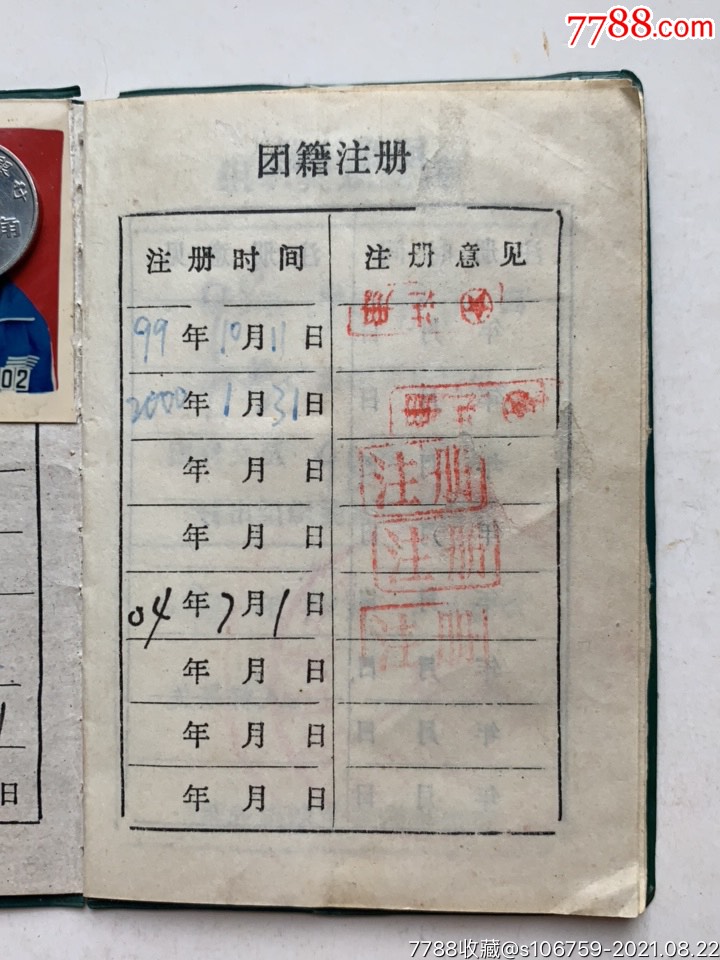 7788.com
银行
角
02
团籍注册
注册时间 注册意见
99年10月11日 注册
2000年1月31日 注册
年 月 日 注册
年 月 日 注册
04年7月1日 注册
年 月 日
年 月 日
年 月 日
日
7788收藏@s106759-2021.08.22